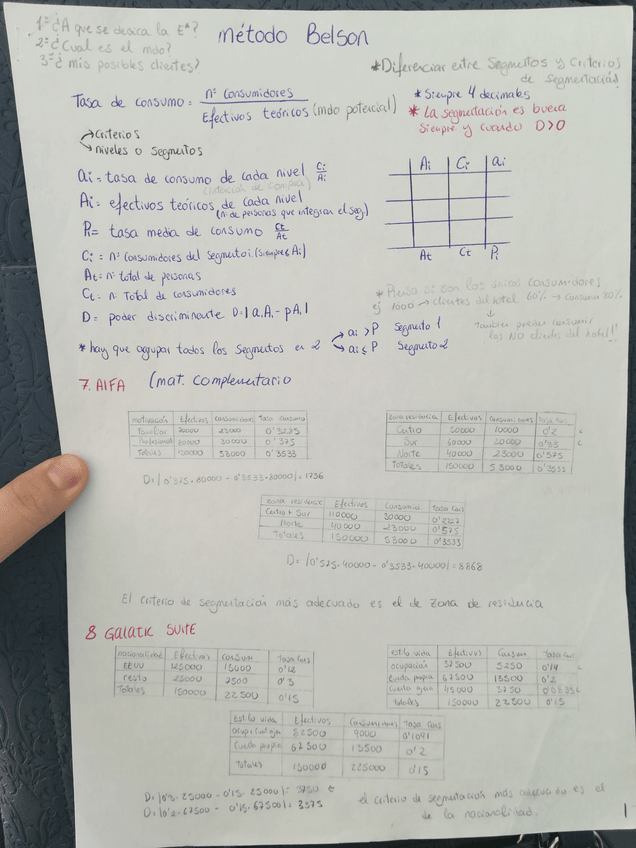 1º ¿A que se dedica la Eª?
2º ¿Cual es el mdo?
3º ¿mis posibles clientes?
método Belson
*Diferenciar entre Segmentos y Criterios
de segmentación
Tasa de consumo = nº consumidores / Efectivos teóricos (mdo potencial)
* Siempre 4 decimales
* La segmentación es buena
Siempre y cuando D>0
→ Criterios
→ niveles o segmentos
ai = tasa de consumo de cada nivel Ci/Ai
Ai = efectivos teóricos de cada nivel
(nº de personas que integran el seg)
P = tasa media de consumo Ct/At
Ci = nº consumidores del segmento i (siempre ≤ Ai)
At = nº total de personas
Ct = nº Total de consumidores
D = poder discriminante D=|a.A. - pA.|
Ai Ci ai
At Ct Pi
* Piensa si son los únicos consumidores
ej 1000 → clientes del hotel 60% → consume 80%
↓
También pueden consumir
los NO clientes del hotel!!
* hay que agrupar todos los segmentos en 2
→ ai > P Segmento 1
→ ai ≤ P Segmento 2
7. AIFA (mat. complementario
motivación Efectivos consumidores Tasa consumo
Familiar 70000 23000 0'3285
Profesional 80000 30000 0'375
Totales 150000 53000 0'3533
D=|0'375·80000 - 0'3533·80000| = 1736
zona residencia Efectivos consumidores Tasa Cons
Centro 50000 10000 0'2 c
Sur 60000 20000 0'33 c
Norte 40000 23000 0'575
Totales 150000 53000 0'3533
zona residenc Efectivos Consumid Tasa Cons
Centro + Sur 110000 30000 0'2727
Norte 40000 23000 0'575
Totales 150000 53000 0'3533
D= |0'575·40000 - 0'3533·40000| = 8868
El criterio de segmentación más adecuado es el de zona de residencia
8 GALATIC SUITE
nacionalidad Efectivos consum Tasa Cons
EEUU 125000 15000 0'12
resto 25000 7500 0'3
Totales 150000 22500 0'15
estilo vida Efectivos Consum Tasa Cons
ocupación 37500 5250 0'14 c
Cuida propia 67500 13500 0'2
45000 3750 0'0833 c
totales 150000 22500 0'15
estilo vida Efectivos Consumidores Tasa Cons
82500 9000 0'1091
Cuida propia 67500 13500 0'2
Totales 150000 225000 0'15
D=|0'3·25000 - 0'15·25000| = 3750
D=|0'2·67500 - 0'15·67500| = 3375
el criterio de segmentación más adecuado es el
de la nacionalidad.
1